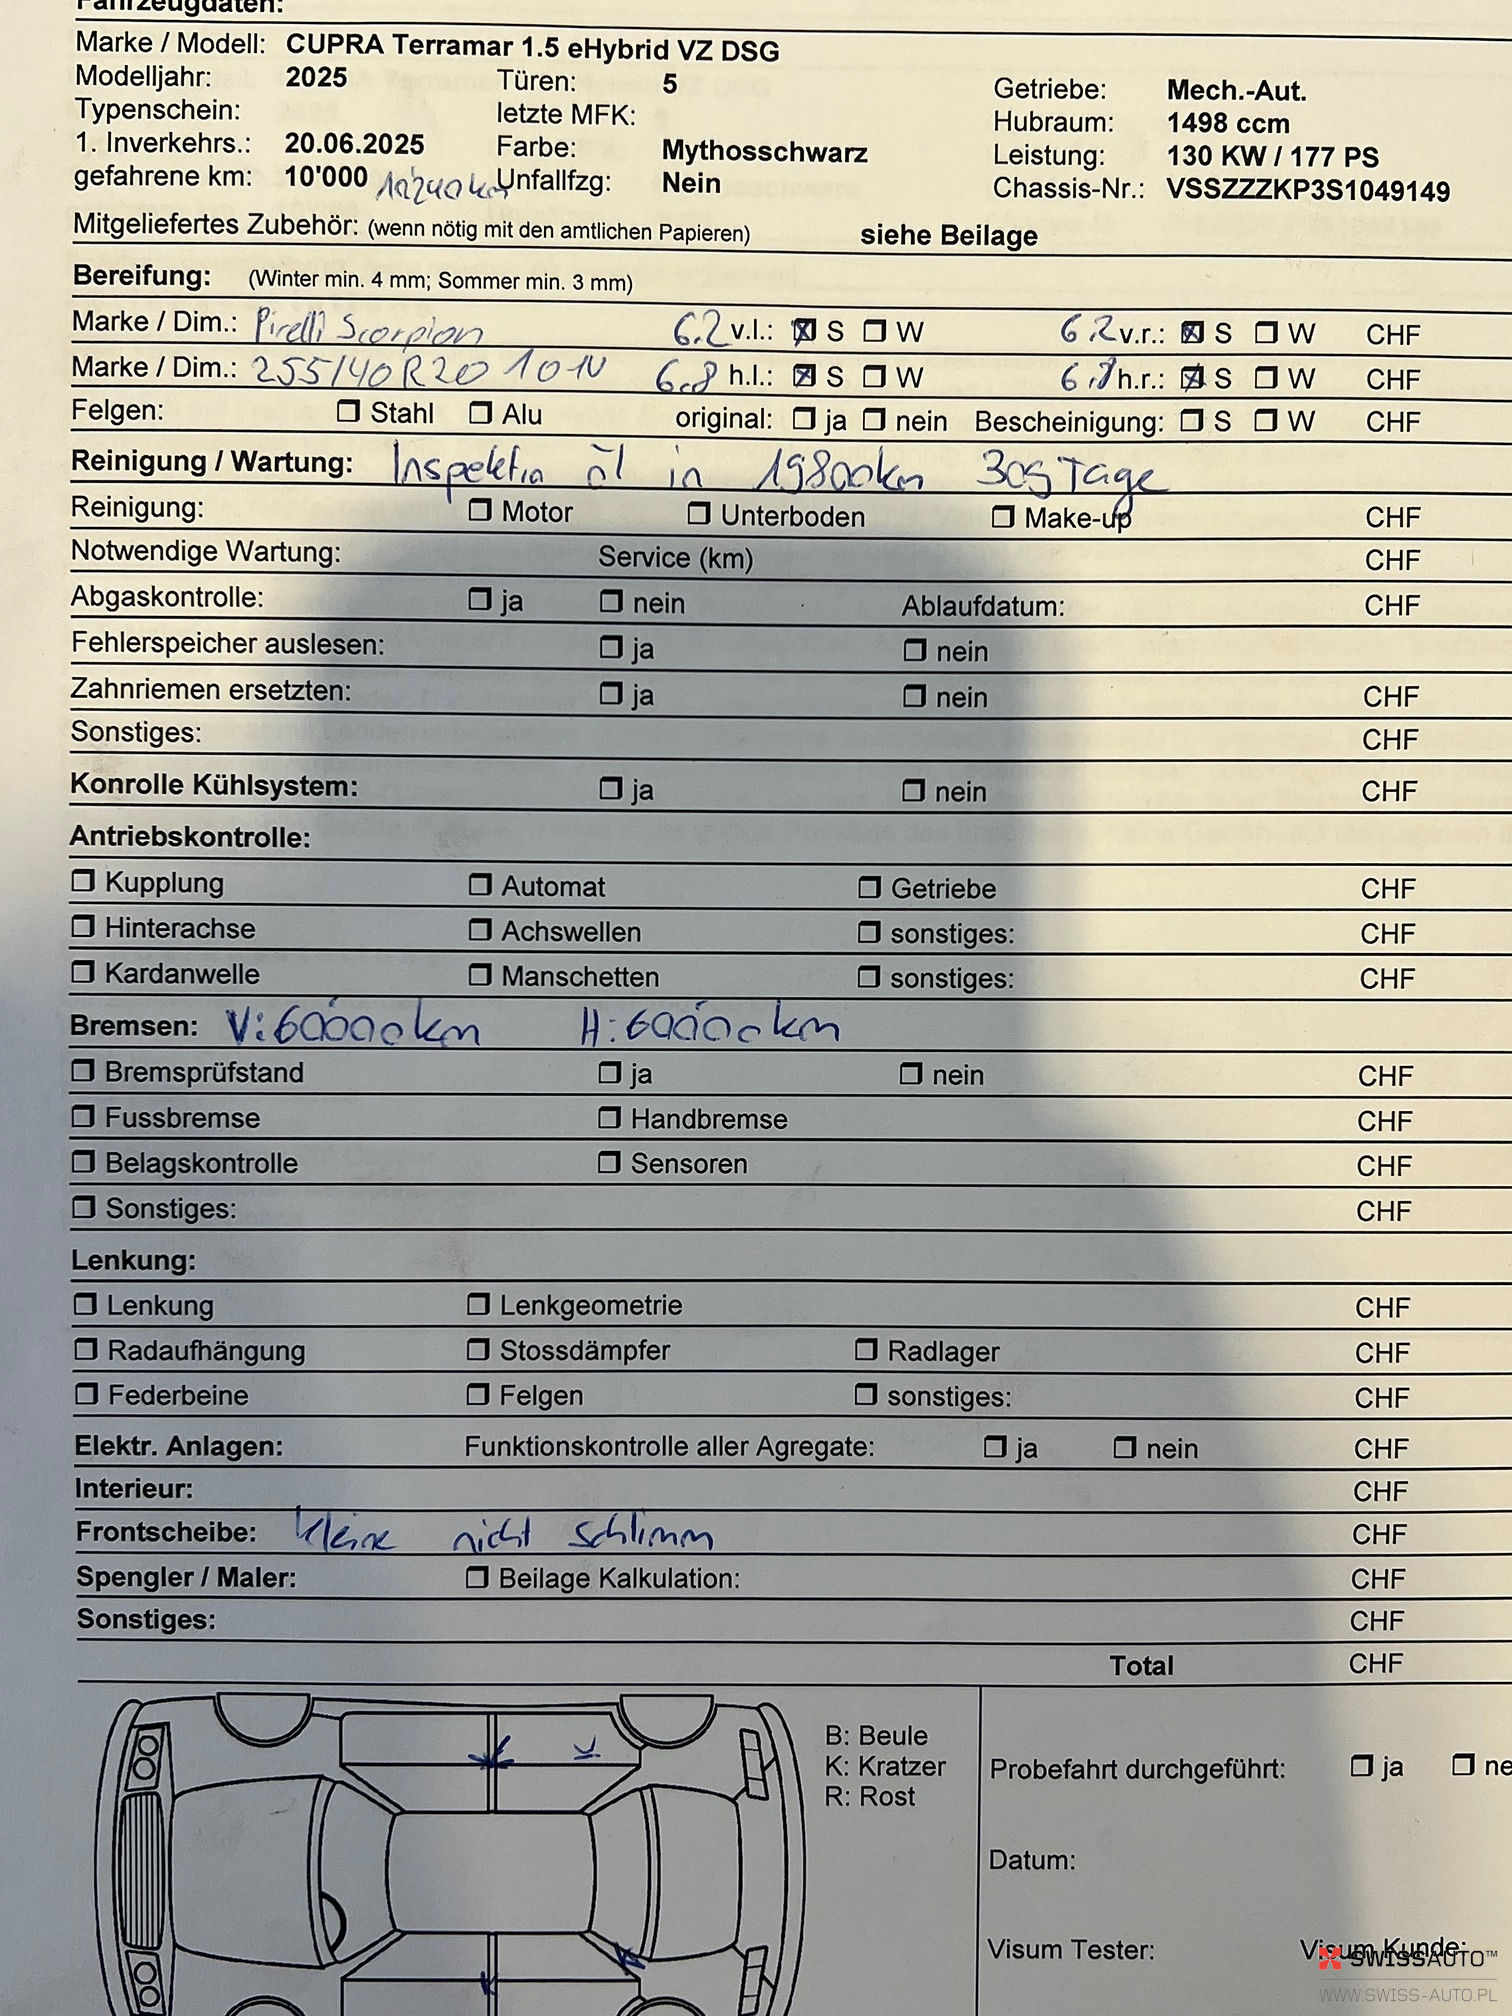 Fahrzeugdaten:
Marke / Modell: CUPRA Terramar 1.5 eHybrid VZ DSG
Modelljahr: 2025 Türen: 5 Getriebe: Mech.-Aut.
Typenschein: letzte MFK: Hubraum: 1498 ccm
1. Inverkehrs.: 20.06.2025 Farbe: Mythosschwarz Leistung: 130 KW / 177 PS
gefahrene km: 10'000 10'240km Unfallfzg: Nein Chassis-Nr.: VSSZZZKP3S1049149
Mitgeliefertes Zubehör: (wenn nötig mit den amtlichen Papieren) siehe Beilage
Bereifung: (Winter min. 4 mm; Sommer min. 3 mm)
Marke / Dim.: Pirelli Scorpion 6.2 v.l.: ☒ S ☐ W 6.2 v.r.: ☒ S ☐ W CHF
Marke / Dim.: 255/40 R20 101V 6.8 h.l.: ☒ S ☐ W 6.8 h.r.: ☒ S ☐ W CHF
Felgen: ☐ Stahl ☐ Alu original: ☐ ja ☐ nein Bescheinigung: ☐ S ☐ W CHF
Reinigung / Wartung: Inspektion öl in 19800km 305 Tage
Reinigung: ☐ Motor ☐ Unterboden ☐ Make-up CHF
Notwendige Wartung: Service (km) CHF
Abgaskontrolle: ☐ ja ☐ nein Ablaufdatum: CHF
Fehlerspeicher auslesen: ☐ ja ☐ nein
Zahnriemen ersetzten: ☐ ja ☐ nein CHF
Sonstiges: CHF
Konrolle Kühlsystem: ☐ ja ☐ nein CHF
Antriebskontrolle:
☐ Kupplung ☐ Automat ☐ Getriebe CHF
☐ Hinterachse ☐ Achswellen ☐ sonstiges: CHF
☐ Kardanwelle ☐ Manschetten ☐ sonstiges: CHF
Bremsen: V: 60'000km H: 60'000km
☐ Bremsprüfstand ☐ ja ☐ nein CHF
☐ Fussbremse ☐ Handbremse CHF
☐ Belagskontrolle ☐ Sensoren CHF
☐ Sonstiges: CHF
Lenkung:
☐ Lenkung ☐ Lenkgeometrie CHF
☐ Radaufhängung ☐ Stossdämpfer ☐ Radlager CHF
☐ Federbeine ☐ Felgen ☐ sonstiges: CHF
Elektr. Anlagen: Funktionskontrolle aller Agregate: ☐ ja ☐ nein CHF
Interieur: CHF
Frontscheibe: kleine nicht schlimm CHF
Spengler / Maler: ☐ Beilage Kalkulation: CHF
Sonstiges: CHF
Total CHF
K K
B: Beule
K: Kratzer
R: Rost
Probefahrt durchgeführt: ☐ ja ☐ ne
Datum:
Visum Tester: Visum Kunde:
K K
SWISSAUTO™
WWW.SWISS-AUTO.PL